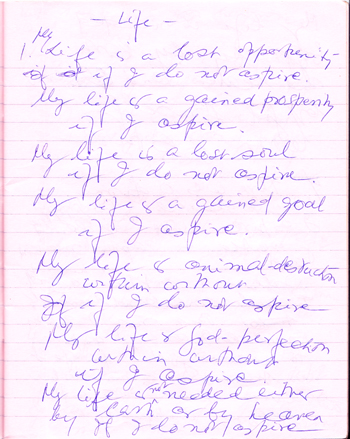 — Life —
My
1. Life is a lost opportunity
if I do not aspire.
My life is a gained prosperity
if I aspire.
My life is a lost soul
if I do not aspire.
My life is a gained goal
if I aspire.
My life is animal-destruction
within without
if I do not aspire
My life is God-perfection
within without
if I aspire.
My life is not needed either
by Earth or by Heaven
if I do not aspire